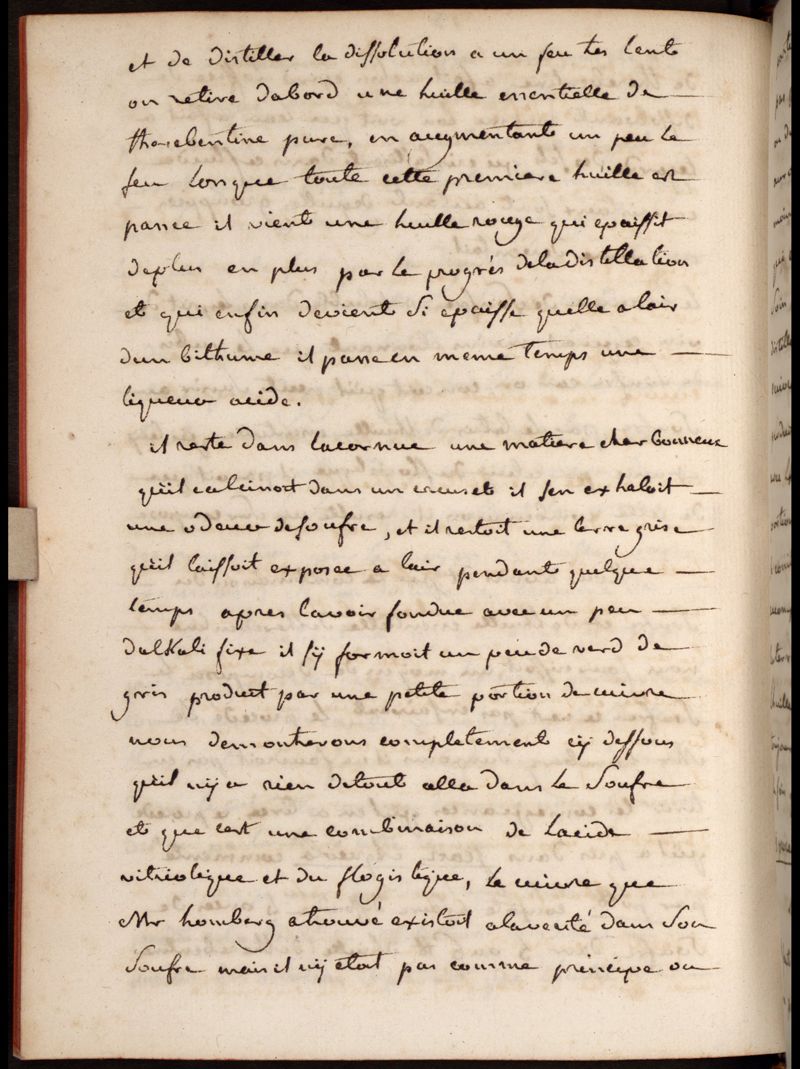 et de distiller la dissolution a un feu tes lent
on retire dabord une huille essentielle de
therebentine pure, en augmentant un peu le
feu Lorsque toute cette premiere huille est
passee il vient une huille rouge qui epaissit
deplus en plus par le progrès deladistillation
et qui enfin devient si epaisse quelle a lair
dun bithume il passe en meme temps une
liqueur acide.
il reste dans lacornue une matiere charbonneuse
quil calcinoit dans un creuset il sen exhaloit
une odeur desoufre, et il restoit une terre grise
quil laissoit exposee a lair pendant quelque
temps apres lavoir fondue avec un peu
dalKali fixe il sÿ formoit un peu de verd de
gris produit par une petite portion de cuivre
nous demontrerons completement cÿ dessous
quil nÿ a rien detout cella dans le Soufre
et que cest une combinaison de Lacide
vitriolique et du flogistique, le cuivre que
Mr homberg a trouvé existoit alaverité dans Son
Soufre mais il nÿ etoit pas comme principe ou